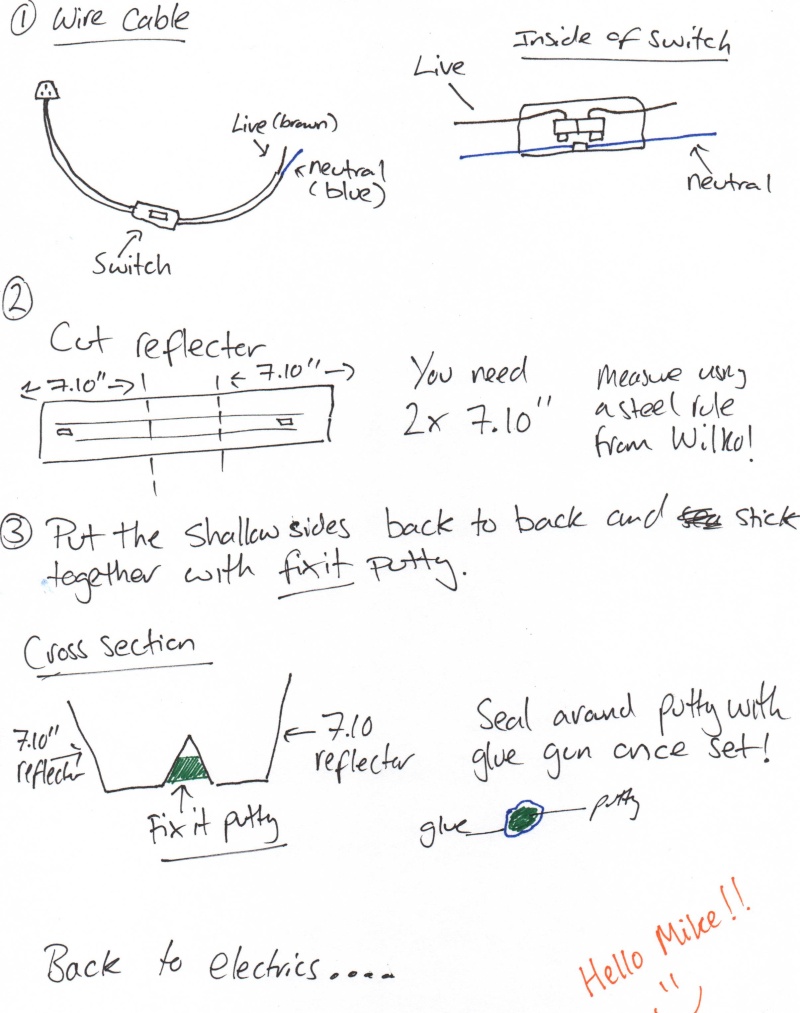 ① Wire Cable
Live (brown)
neutral
(blue)
Switch
Inside of switch
Live
neutral
②
Cut reflecter
7.10"
7.10"
You need
2x 7.10"
Measure using
a steel rule
from Wilko!
③ Put the shallow sides back to back and stick
together with fixit putty.
Cross section
7.10"
reflector
7.10
reflector
Fix it putty
Seal around putty with
glue gun once set!
glue
putty
Back to electrics....
Hello Mike!!